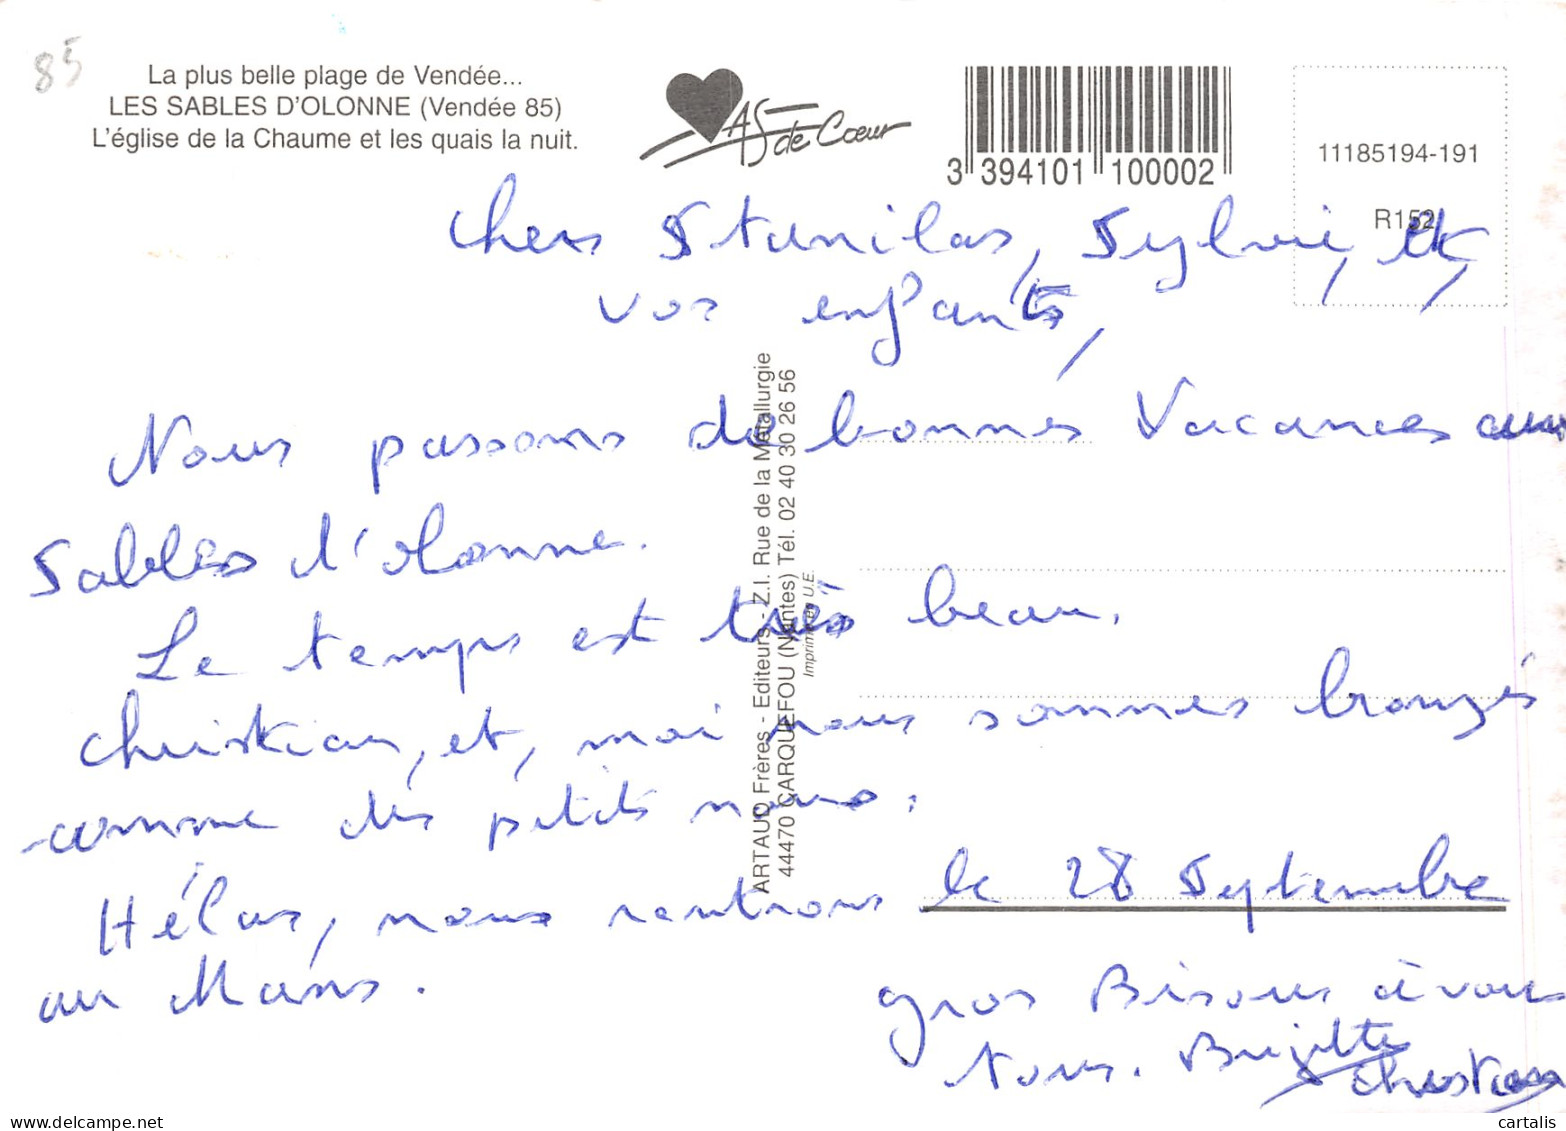 85
La plus belle plage de Vendée...
LES SABLES D'OLONNE (Vendée 85)
L'église de la Chaume et les quais la nuit.
AS de Cœur
3 394101 100002
11185194-191
R152
Chers Stanilas, Sylvie, et,
vos enfants,
Nous passons de bonnes Vacances aux
Sables d'olonne.
Le temps est très beau.
Christian, et, moi nous sommes bronzés
comme des petits
Hélas, nous rentrons le 28 Septembre
au Mans.
gros Bisous à vous
Tous. Brigitte
Christian
ARTAUD Frères - Editeurs - Z.I. Rue de la Métallurgie
44470 CARQUEFOU (Nantes) Tél. 02 40 30 26 56
Imprimé en U.E.
cartalis